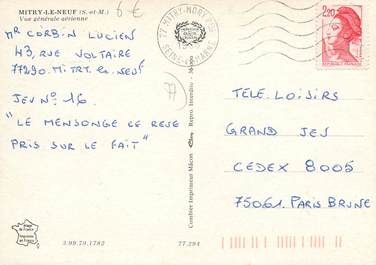 MITRY-LE-NEUF (S.-et-M.)
Vue générale aérienne
6 €
Mr CORBIN LUCIEN
43, RUE VOLTAIRE
77290. MITRY. LE. NEUF
JEU N°: 16.
"LE MENSONGE LE REVE
PRIS SUR LE FAIT"
77 MITRY-MORY
SEINE-ET-MARNE
77
2,20
TELE. LOISIRS
GRAND JEU
CEDEX 8005
75061. PARIS BRUNE
Combier Imprimeur Mâcon
Repro. Interdite
Image de France
Imprimée en France
3.99.79.1782
77.294